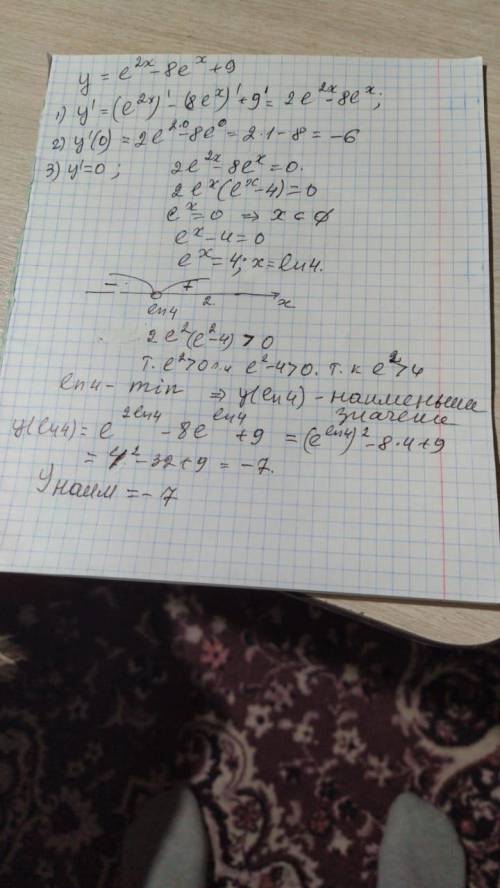 y = e^{2x} - 8e^x + 9
1) y' = (e^{2x})' - (8e^x)' + 9' = 2e^{2x} - 8e^x;
2) y'(0) = 2e^{2·0} - 8e^0 = 2·1 - 8 = -6
3) y' = 0; 2e^{2x} - 8e^x = 0.
2e^x(e^x - 4) = 0
e^x = 0 ⇒ x ∈ ∅
e^x - 4 = 0
e^x = 4; x = ln4.
- +
ln4 2 x
2e^2(e^2 - 4) > 0
т. e^2 > 0 и e^2 - 4 > 0. т. к e^2 > 4
ln4 - min ⇒ y(ln4) - наименьшее
значение
y(ln4) = e^{2ln4} - 8e^{ln4} + 9 = (e^{ln4})^2 - 8·4 + 9
= 4^2 - 32 + 9 = -7.
Yнаим = -7